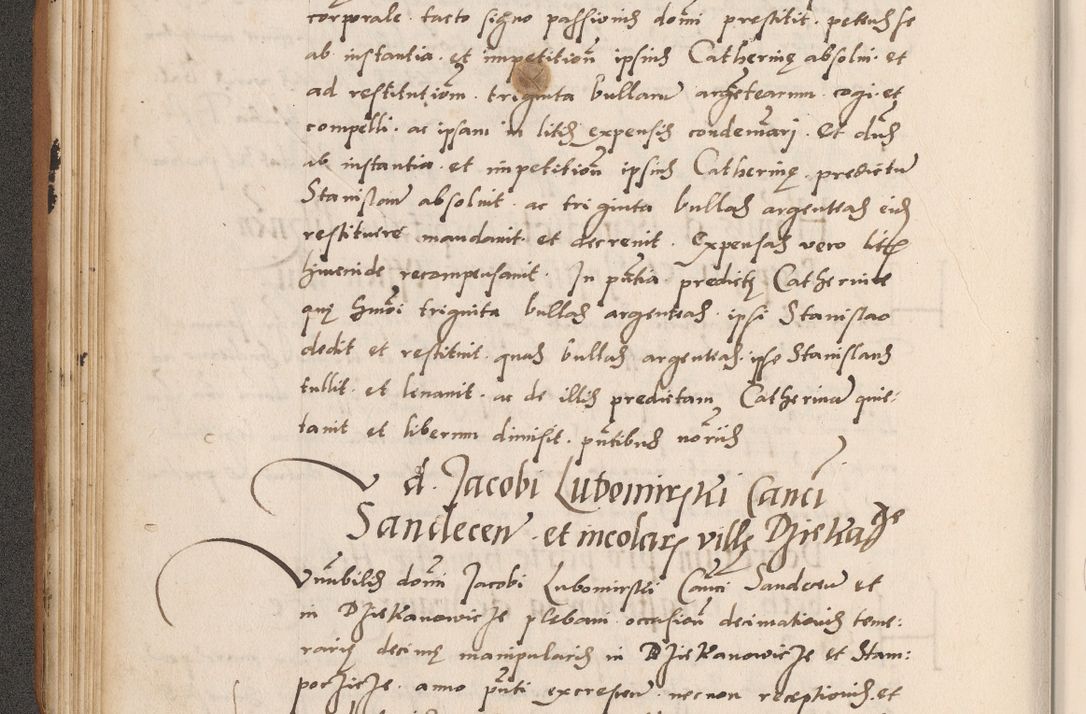 corporale · tacto signo passionis domi prestitit · petens se
ab instantia · et impetition ipsius Catherinę absolui · et
ad restitution · triginta bullarum argetearum · cogi · et
compelli · ac ipsam in litis expensis condemnari · Et dns
ab instantia · et impetition ipsius Catherinę · predictu
Stanislaum absoluit · ac triginta bullas argenteas eid
restituere mandauit et decreuit · Expensas vero litis
hincinde recompensauit · In pntia predictę Catherine
quę hmoi triginta bullas argenteas · ipsi Stanislao
dedit et restituit · quas bullas argenteas ipse Stanislaus
tullit · et leuauit · ac de illis predictam Catherina quie:
tauit et liberum dimisit · pntibus noriis
d. Jacobi Lubomirski Canci
Sandecen et incolar villę Dziekage
Vnnbilis domi Jacobi Lubomirski Canci Sandecen et
in Dziekanowicze plebani occasion decimationis teme:
rarię decimę manipularis in Dziekanowicze et Stam:
poczicze · anno pnti excrescen · necnon receptionis · et